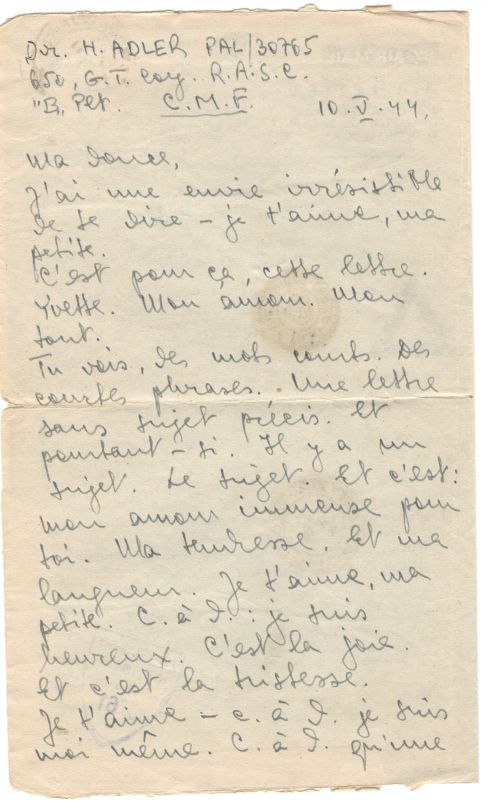 Dvr. H. ADLER PAL/30765
650, G.T. Coy. R.A.S.C.
"B" Plt. C.M.F. 10.V.44.
Ma douce,
J'ai une envie irrésistible
de te dire – je t'aime, ma
petite.
C'est pour ça, cette lettre.
Yvette. Mon amour. Mon
tout.
Tu vois, des mots courts. Des
courtes phrases. Une lettre
sans sujet précis. Et
pourtant – si. Il y a un
sujet. Le sujet. Et c'est:
mon amour immense pour
toi. Ma tendresse. Et ma
langueur. Je t'aime, ma
petite. C. à d.: je suis
heureux. C'est la joie.
Et c'est la tristesse.
Je t'aime – c. à d. je suis
moi même. C. à d. qu'une